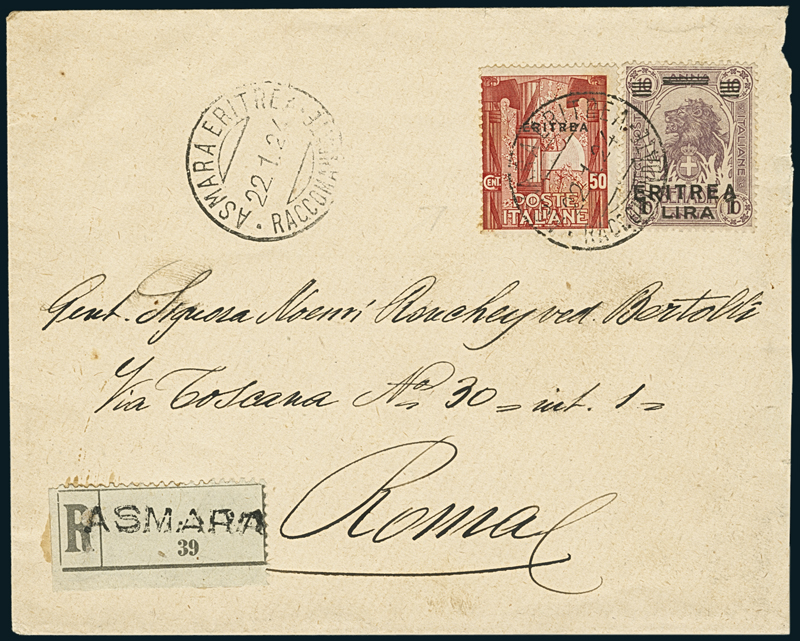 ASMARA ERITREA
22.1.24
CENT. 50
ERITREA
POSTE
ITALIANE
ANNA
ITALIANE
ERITREA
LIRA
Gent. Signora Noemi Ronchey ved. Bertolli
Via Toscana No 30 = int. 1 =
Roma
R ASMARA
39